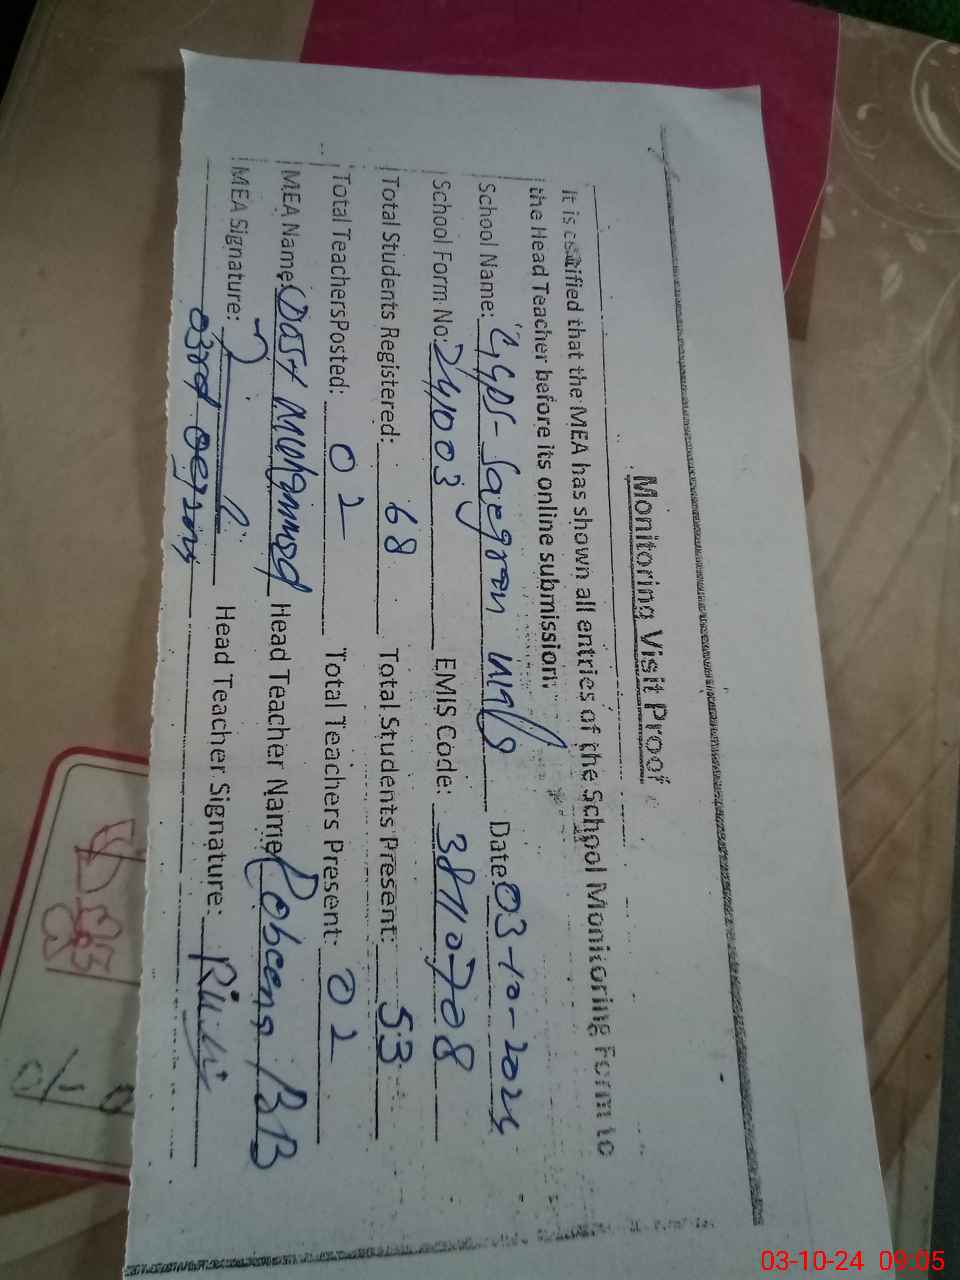 Monitoring Visit Proof
It is certified that the MEA has shown all entries of the School Monitoring Form to
the Head Teacher before its online submission.
School Name: GGPS- Date: 03-10-2024
School Form No: 241003 EMIS Code: 38110708
Total Students Registered: 68 Total Students Present: 53
Total TeachersPosted: 02 Total Teachers Present: 02
MEA Name: Dost Mohammad Head Teacher Name: BB
MEA Signature: Head Teacher Signature:
03rd
03-10-24 09:05